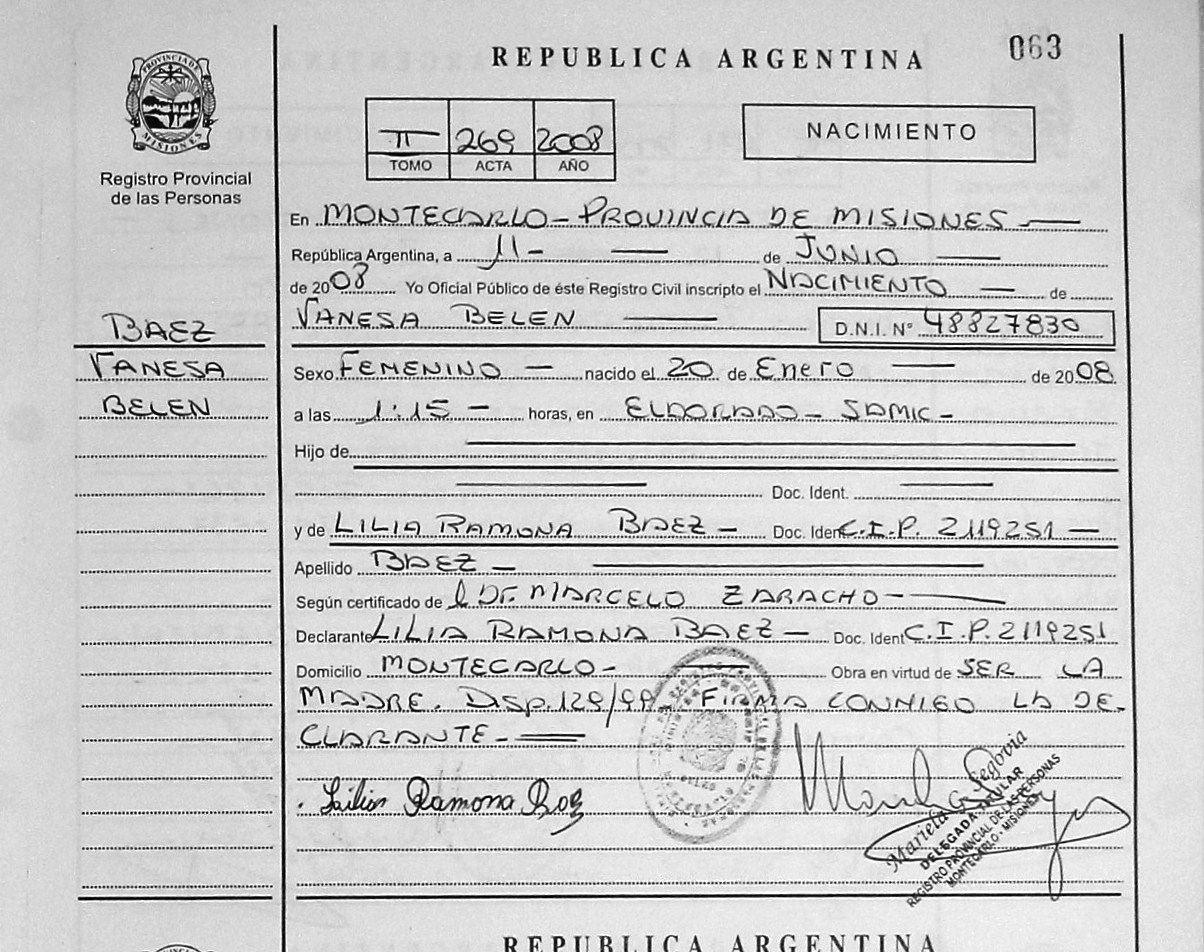 REPUBLICA ARGENTINA
063
PROVINCIA DE MISIONES
Registro Provincial
de las Personas
II 269 2008
TOMO ACTA AÑO
NACIMIENTO
En MONTECARLO - PROVINCIA DE MISIONES
República Argentina, a 11 - de JUNIO
de 2008 Yo Oficial Público de éste Registro Civil inscripto el NACIMIENTO de
VANESA BELEN D.N.I. N° 48827830
BAEZ
VANESA
BELEN
Sexo FEMENINO - nacido el 20 de Enero de 2008
a las 1:15 - horas, en ELDORADO - SAMIC -
Hijo de
Doc. Ident.
y de LILIA RAMONA BAEZ - Doc. Ident C.I.P. 2119251 -
Apellido BAEZ -
Según certificado de l Dr. MARCELO ZARACHO -
Declarante LILIA RAMONA BAEZ - Doc. Ident C.I.P. 2119251
Domicilio MONTECARLO - Obra en virtud de SER LA
MADRE. Disp. 129/99. FIRMA CONMIGO LA DE-
CLARANTE -
Ramona
Mariela Segovia
DELEGADA TITULAR
REGISTRO PROVINCIAL DE LAS PERSONAS
MONTECARLO - MISIONES
REPUBLICA ARGENTINA